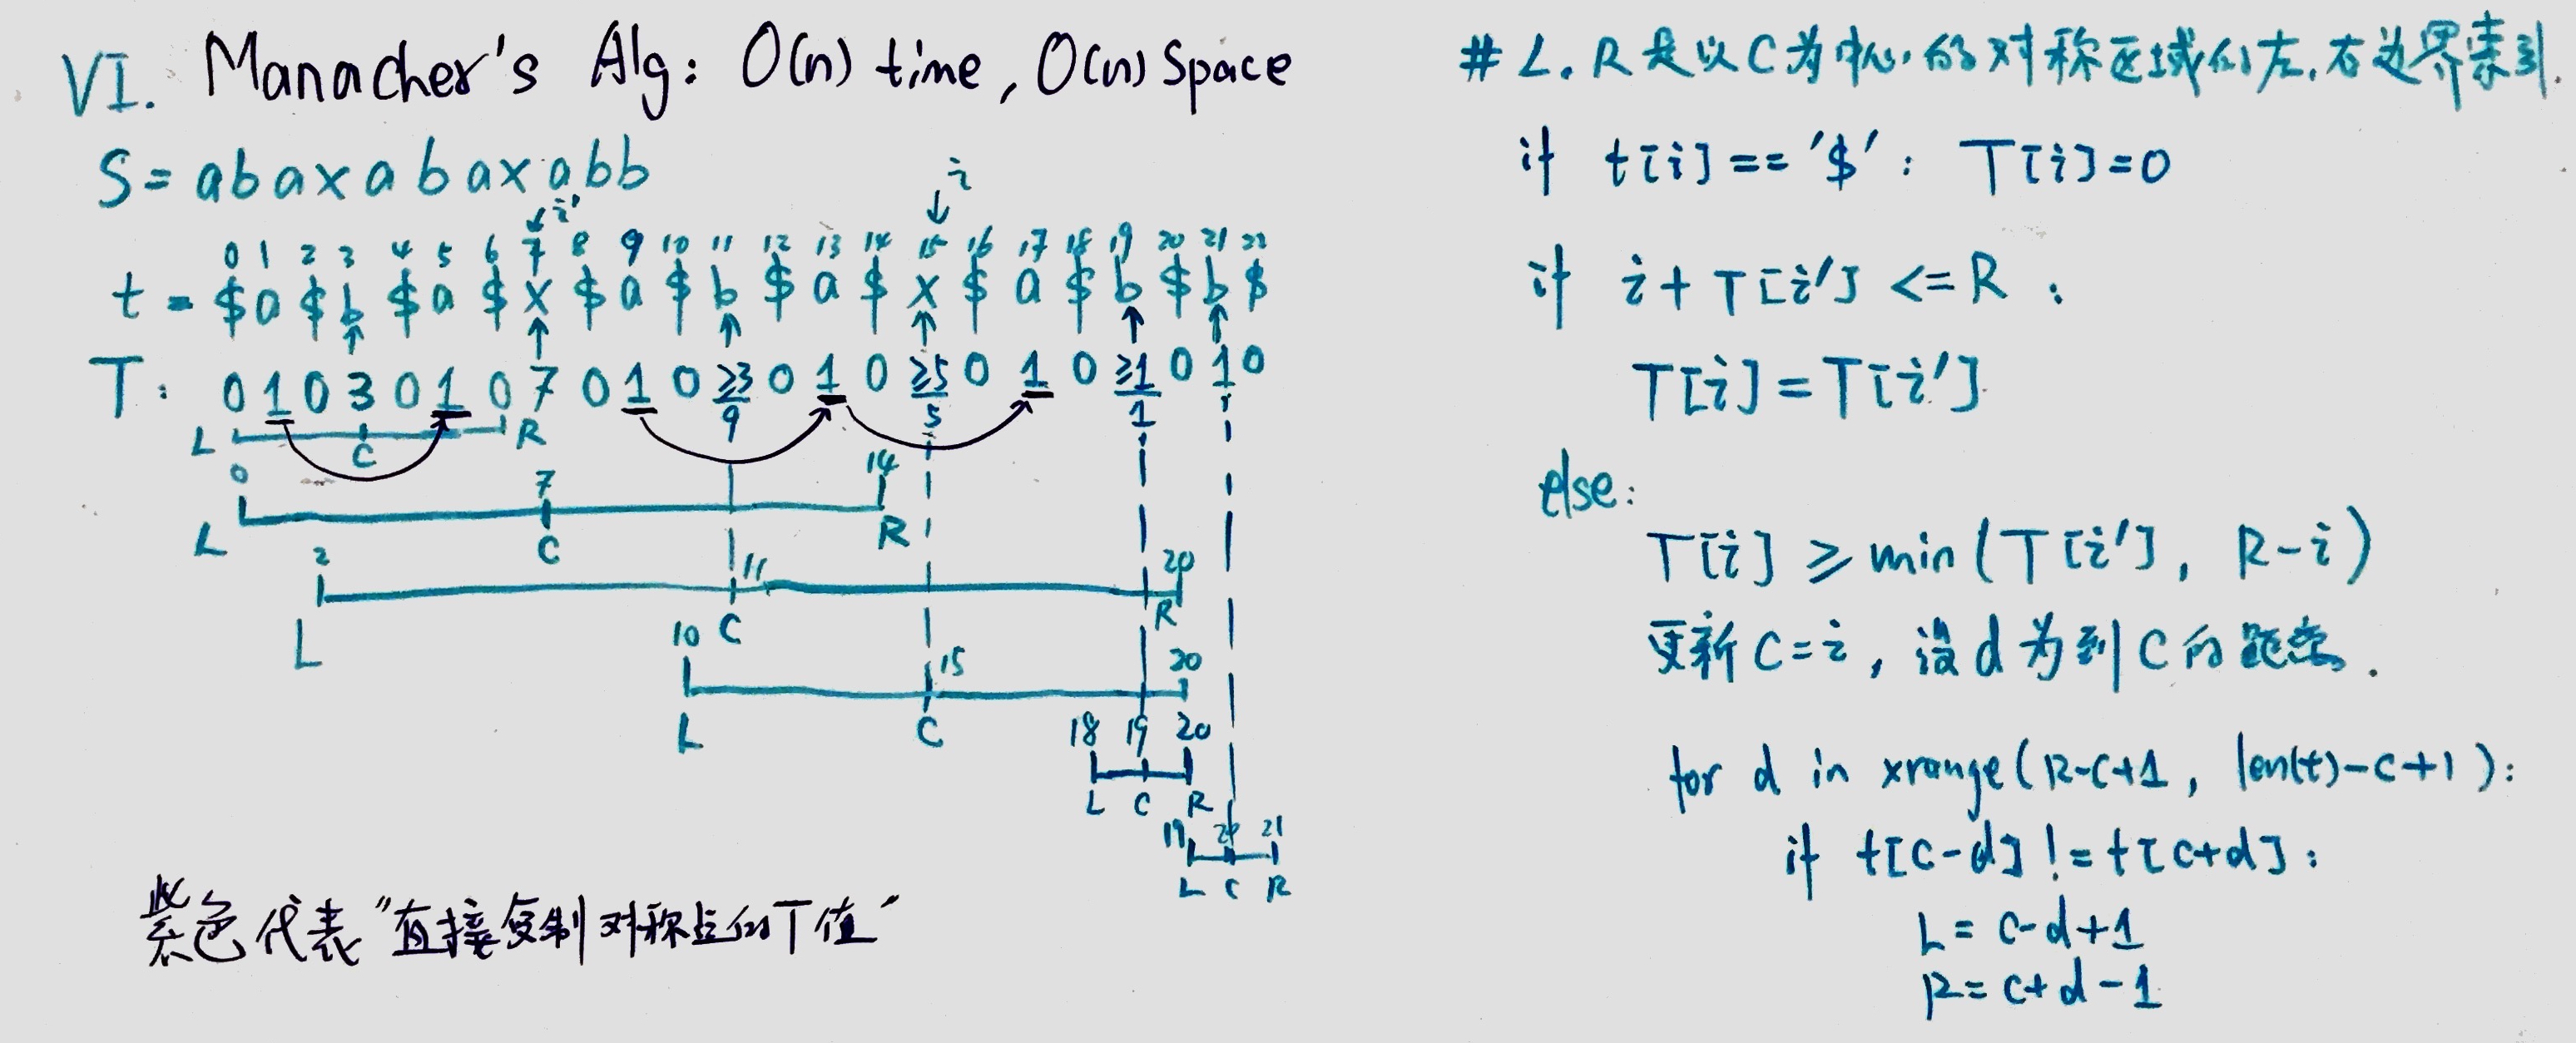 VI. Manacher's Alg: O(n) time, O(n) Space
S= abaxabaxabb
i' i
0 1 2 3 4 5 6 7 8 9 10 11 12 13 14 15 16 17 18 19 20 21 22
t = $ a $ b $ a $ x $ a $ b $ a $ x $ a $ b $ b $
T: 0 1 0 3 0 1 0 7 0 1 0 ≥3 0 1 0 ≥5 0 1 0 ≥1 0 1 0
9 5 1
L C R
0 7 14
L C R
2 11 20
L C R
10 15 20
L C
18 19 20
L C R
19 21
L C R
紫色代表"直接复制对称点的T值"
# L, R是以C为中心的对称区域的左,右边界索引.
if t[i] == '$': T[i]=0
if i + T[i'] <= R :
T[i] = T[i']
else:
T[i] ≥ min(T[i'], R-i)
更新C=i, 设d为到C的距离.
for d in xrange(R-C+1, len(t)-C+1):
if t[C-d] != t[C+d]:
L= C-d+1
R= C+d-1